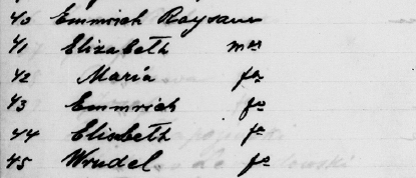 40 Emmrich Raysann
41 Elizabeth mrs
42 Maria fa
43 Emmrich fa
44 Elisbeth fa
45 Wrudel fa